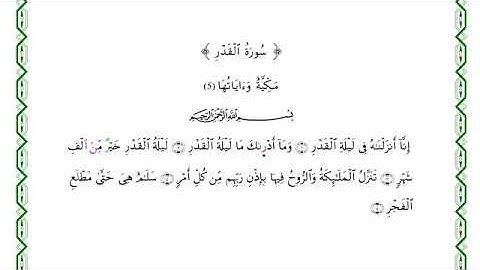 ﴿ سُورَةُ اَلْقَدْرِ ﴾
مَكِّيَّةٌ وَءَايَاتُهَا (5)
بِسْمِ اللَّهِ الرَّحْمَٰنِ الرَّحِيمِ
إِنَّآ أَنزَلْنَٰهُ فِى لَيْلَةِ اِلْقَدْرِ ۝ وَمَآ أَدْر۪ىٰكَ مَا لَيْلَةُ اُلْقَدْرِ ۝ لَيْلَةُ اُلْقَدْرِ خَيْرٌ مِّنَ اَلْفِ
شَهْرٍ ۝ تَنَزَّلُ اُلْمَلَٰٓئِكَةُ وَالرُّوحُ فِيهَا بِإِذْنِ رَبِّهِم مِّن كُلِّ أَمْرٍ ۝ سَلَٰمٌ هِىَ حَتَّىٰ مَطْلَعِ
اِلْفَجْرِ ۝